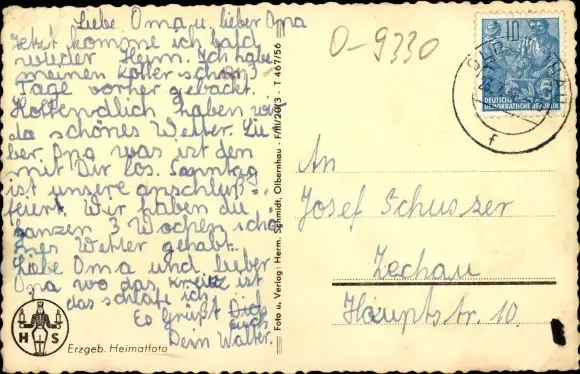 Liebe Oma u. lieber Opa
Jetzt komme ich bald
wieder Heim. Ich habe
meinen Koffer schon 3
Tage vorher gepackt.
Hoffendlich haben wir
da schönes Wetter. Lie
ber Opa was ist den
mit Dir los. Sonntag
ist unsere Anschluß-
feiert. Wir haben die
ganzen 3 Wochen schö
nes Wetter gehabt.
Liebe Oma und lieber
Opa wo das Kreuz ist
das schlafe ich.
Es grüßt Dich
Euch
Dein Walter.
H S
Erzgeb. Heimatfoto
Foto u. Verlag: Herm. Schmidt, Olbernhau - F/III/20/3 - T 467/56
O-9330
10
DEUTSCHE
DEMOKRATISCHE REPUBLIK
f
An
Josef Schusser
Zechau
Hauptstr. 10.